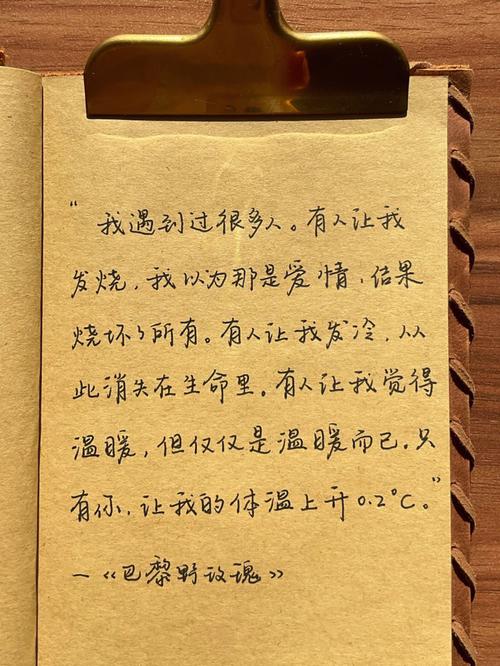 “我遇到过很多人。有人让我
发烧，我以为那是爱情，结果
烧坏了所有。有人让我发冷，从
此消失在生命里。有人让我觉得
温暖，但仅仅是温暖而已。只
有你，让我的体温上升0.2℃。”
—《巴黎野玫瑰》